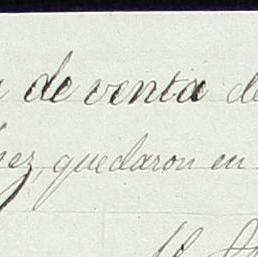 de venta de
quedaron en